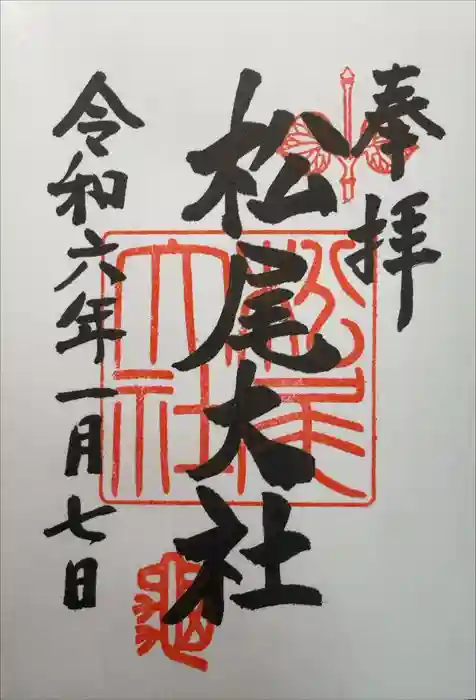 奉拝
松尾大社
令和六年一月七日
松尾大社
亀